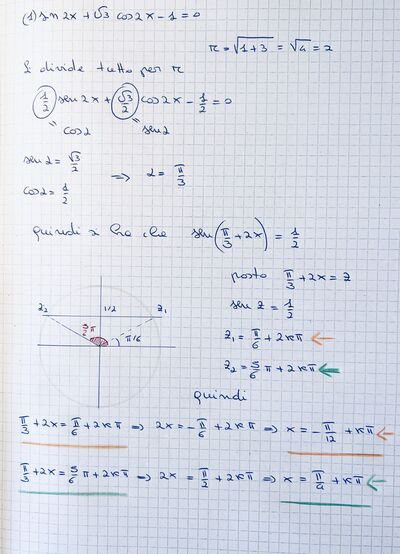 (1) sen 2x + √3 cos 2x - 1 = 0
r = √(1+3) = √4 = 2
Si divide tutto per r
1/2 sen 2x + √3/2 cos 2x - 1/2 = 0
" cos α " sen α
sen α = √3/2
cos α = 1/2 ⇒ α = π/3
quindi si ha che sen(π/3 + 2x) = 1/2
posto π/3 + 2x = z
sen z = 1/2
z₂ 1/2 z₁
5/6 π π/6
z₁ = π/6 + 2kπ ←
z₂ = 5/6 π + 2kπ ←
quindi
π/3 + 2x = π/6 + 2kπ ⇒ 2x = -π/6 + 2kπ ⇒ x = -π/12 + kπ ←
π/3 + 2x = 5/6 π + 2kπ ⇒ 2x = π/2 + 2kπ ⇒ x = π/4 + kπ ←